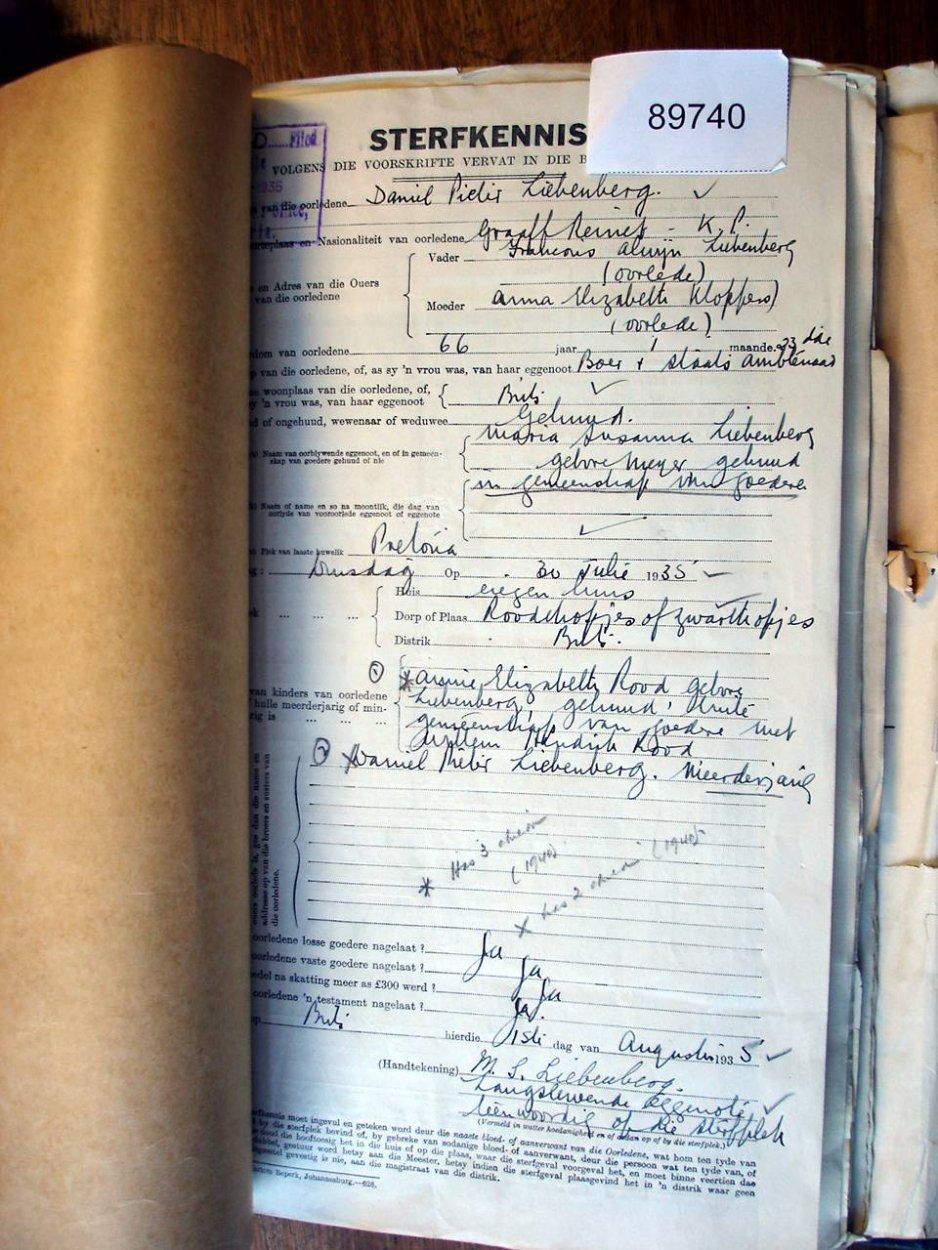 89740
Filed
STERFKENNIS
VOLGENS DIE VOORSKRIFTE VERVAT IN DIE B
van die oorledene Daniel Pieter Liebenberg.
en Nasionaliteit van oorledene Graaff Reinet - K.P.
Vader Francois Alwijn Liebenberg
(oorlede)
en Adres van die Ouers
van die oorledene
Moeder Anna Elizabeth Kloppers)
(oorlede)
dom van oorledene 66 jaar 1 maande 23 dae
van die oorledene, of, as sy 'n vrou was, van haar eggenoot Boer + staats ambtenaar
woonplaas van die oorledene, of,
y 'n vrou was, van haar eggenoot Brits
d of ongehuud, wewenaar of weduwee Gehuud.
Naam van oorblywende eggenoot, en of in gemeen-
skap van goedere gehuud of nie
Maria Susanna Liebenberg
gebore Meyer gehuud
in gemeenskap van goedere
Naam of name en so na moontlik, die dag van
oorlyde van vooroorlede eggenoot of eggenote
Plek van laaste huwelik Pretoria
Dinsdag Op 30 Julie 1935
Huis eigen huis
Dorp of Plaas Roodekopjes of Zwartkopjes
Distrik Brits.
van kinders van oorledene
hulle meerderjarig of min-
rig is
① * Annie Elizabeth Rood gebore
Liebenberg, gehuud buite
gemeenschap van goedere met
Willem Hendrik Rood
② x Daniel Pieter Liebenberg. Meerderjarig
addresse op van die broers en susters van
die oorledene.
* Has 3 (1940)
x has 2 (1940)
oorledene losse goedere nagelaat ? Ja
oorledene vaste goedere nagelaat ? Ja
edel na skatting meer as £300 werd ? Ja
oorledene 'n testament nagelaat ? Ja.
op Brits hierdie 1ste dag van Augustus 1935
(Handtekening) M. S. Liebenberg.
Langslewende eggenote
teenwoordig op die sterfplek
(Vermeld in watter hoedanigheid en of
by die sterfplek.)
moet ingevul en geteken word deur die naaste bloed- of aanverwant van die Oorledene, wat hom ten tyde van
by die sterfplek bevind of, by gebreke van sodanige bloed- of aanverwant, deur die persoon wat ten tyde van, of
dood die hooftoesig het in die huis of op die plaas, waar die sterfgeval voorgeval het, en moet binne veertien dae
gestuur word betay aan die Meester, betay indien die sterfgeval plaasgevind het in 'n distrik waar geen
gevestig is nie, aan die magistraat van die distrik.
Beperk, Johannesburg.—628.